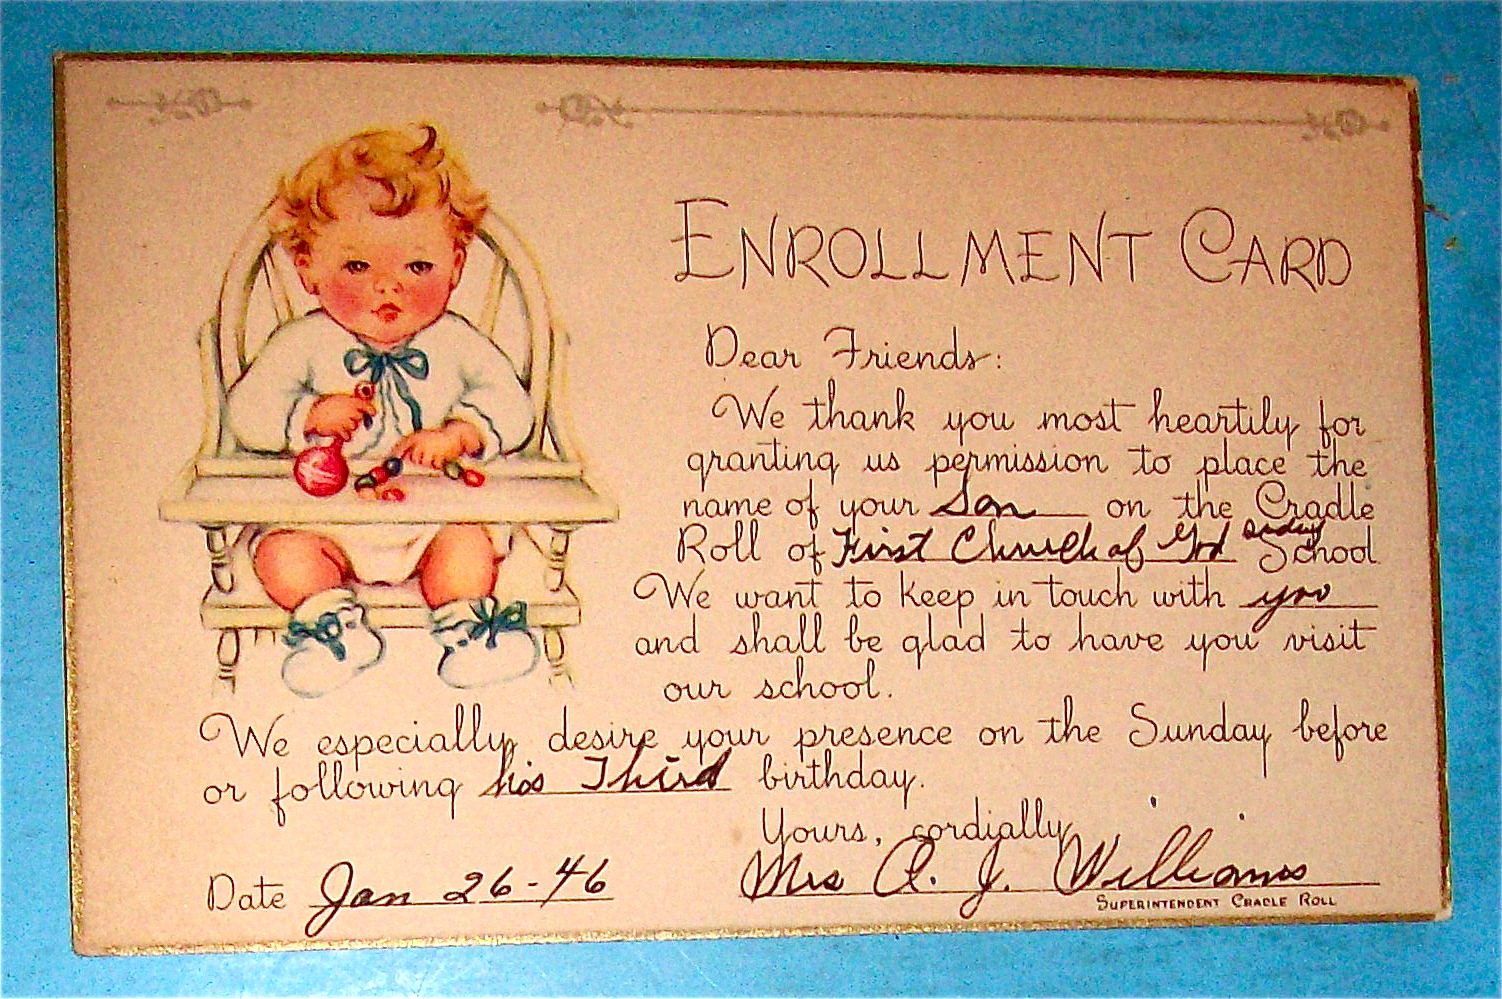 ENROLLMENT CARD
Dear Friends:
We thank you most heartily for
granting us permission to place the
name of your Son on the Cradle
Roll of First Church of God Sunday School
We want to keep in touch with you
and shall be glad to have you visit
our school.
We especially desire your presence on the Sunday before
or following his Third birthday.
Yours, cordially,
Date Jan 26-46 Mrs A. J. Williams
SUPERINTENDENT CRADLE ROLL